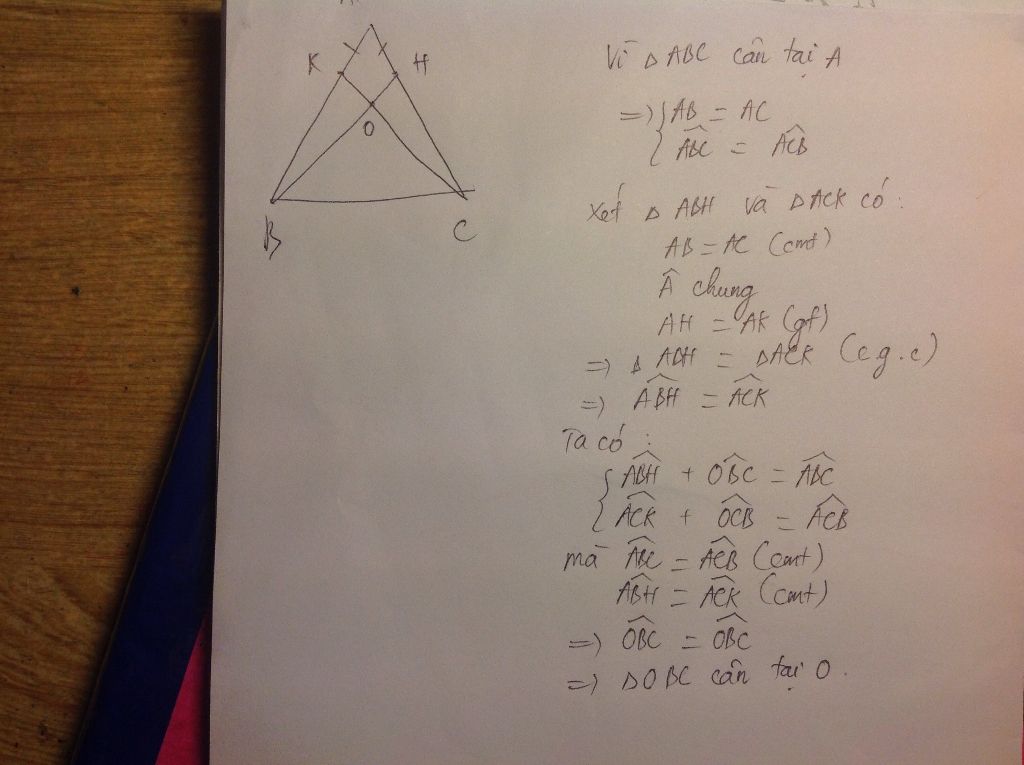 A
K
H
O
B
C
Vì Δ ABC cân tại A
=> { AB = AC
{ \widehat{ABC} = \widehat{ACB}
Xét Δ ABH và Δ ACK có :
AB = AC (cmt)
Â chung
AH = AK (gt)
=> Δ ABH = Δ ACK (c.g.c)
=> \widehat{ABH} = \widehat{ACK}
Ta có :
{ \widehat{ABH} + \widehat{OBC} = \widehat{ABC}
{ \widehat{ACK} + \widehat{OCB} = \widehat{ACB}
mà \widehat{ABC} = \widehat{ACB} (cmt)
\widehat{ABH} = \widehat{ACK} (cmt)
=> \widehat{OBC} = \widehat{OBC}
=> Δ OBC cân tại O.